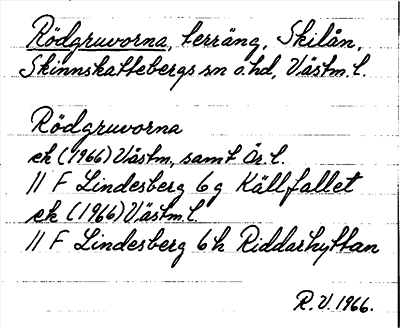 Rödgruvorna, terräng, Skilån,
Skinnskattebergs sn o. hd, Västm. l.
Rödgruvorna
ek (1966) Västm, samt Ör. l.
11 F Lindesberg 6 g Källfallet
ek (1966) Västm. l.
11 F Lindesberg 6 h Riddarhyttan
R. V. 1966.